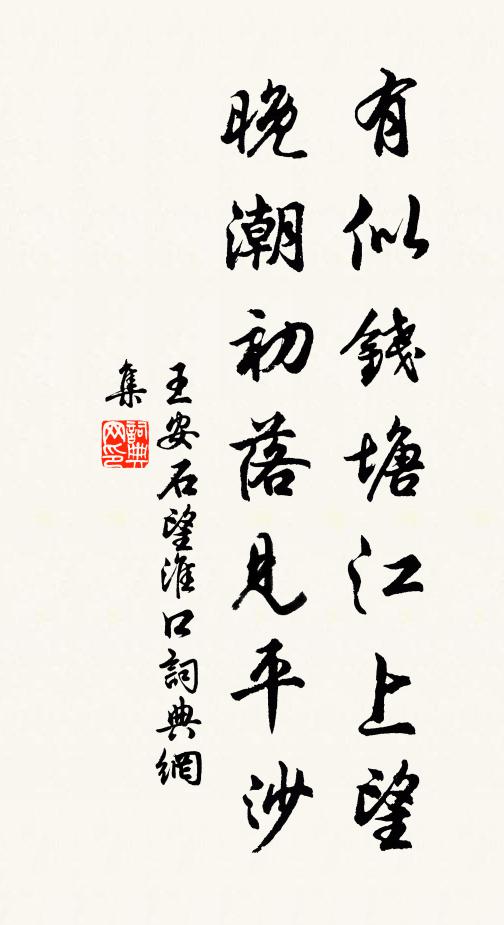 有似錢塘江上望
晚潮初落見平沙
王安石望淮口詞典網
集
詞典网印